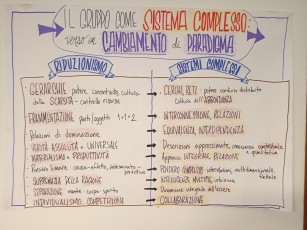 IL GRUPPO COME SISTEMA COMPLESSO:
verso un CAMBIAMENTO di PARADIGMA
RIDUZIONISMO
SISTEMI COMPLESSI
GERARCHIE potere concentrato, cultura
della SCARSITÀ - controllo risorse
FRAMMENTAZIONE parti/oggetti 1+1=2
Relazioni di dominazione
VERITÀ ASSOLUTA e UNIVERSALE
MATERIALISMO e PRODUTTIVITÀ
Pensiero lineare causa-effetto, deterministico-
predittivo
SUPREMAZIA DELLA RAGIONE
SEPARAZIONE mente-corpo-spirito
INDIVIDUALISMO, COMPETIZIONE
CERCHI, RETI potere condiviso distribuito
cultura dell'ABBONDANZA
INTERCONNESSIONI, RELAZIONI
EQUIVALENZA, INTERDIPENDENZA
Descrizioni approssimate, conoscenza contestuale
e qualitativa
Approccio INTEGRALE RELAZIONE
PENSIERO COMPLESSO interrelazioni, multidimensionale,
INTELLIGENZE MULTIPLE intuizione
Dimensione integrale dell'essere
COLLABORAZIONE